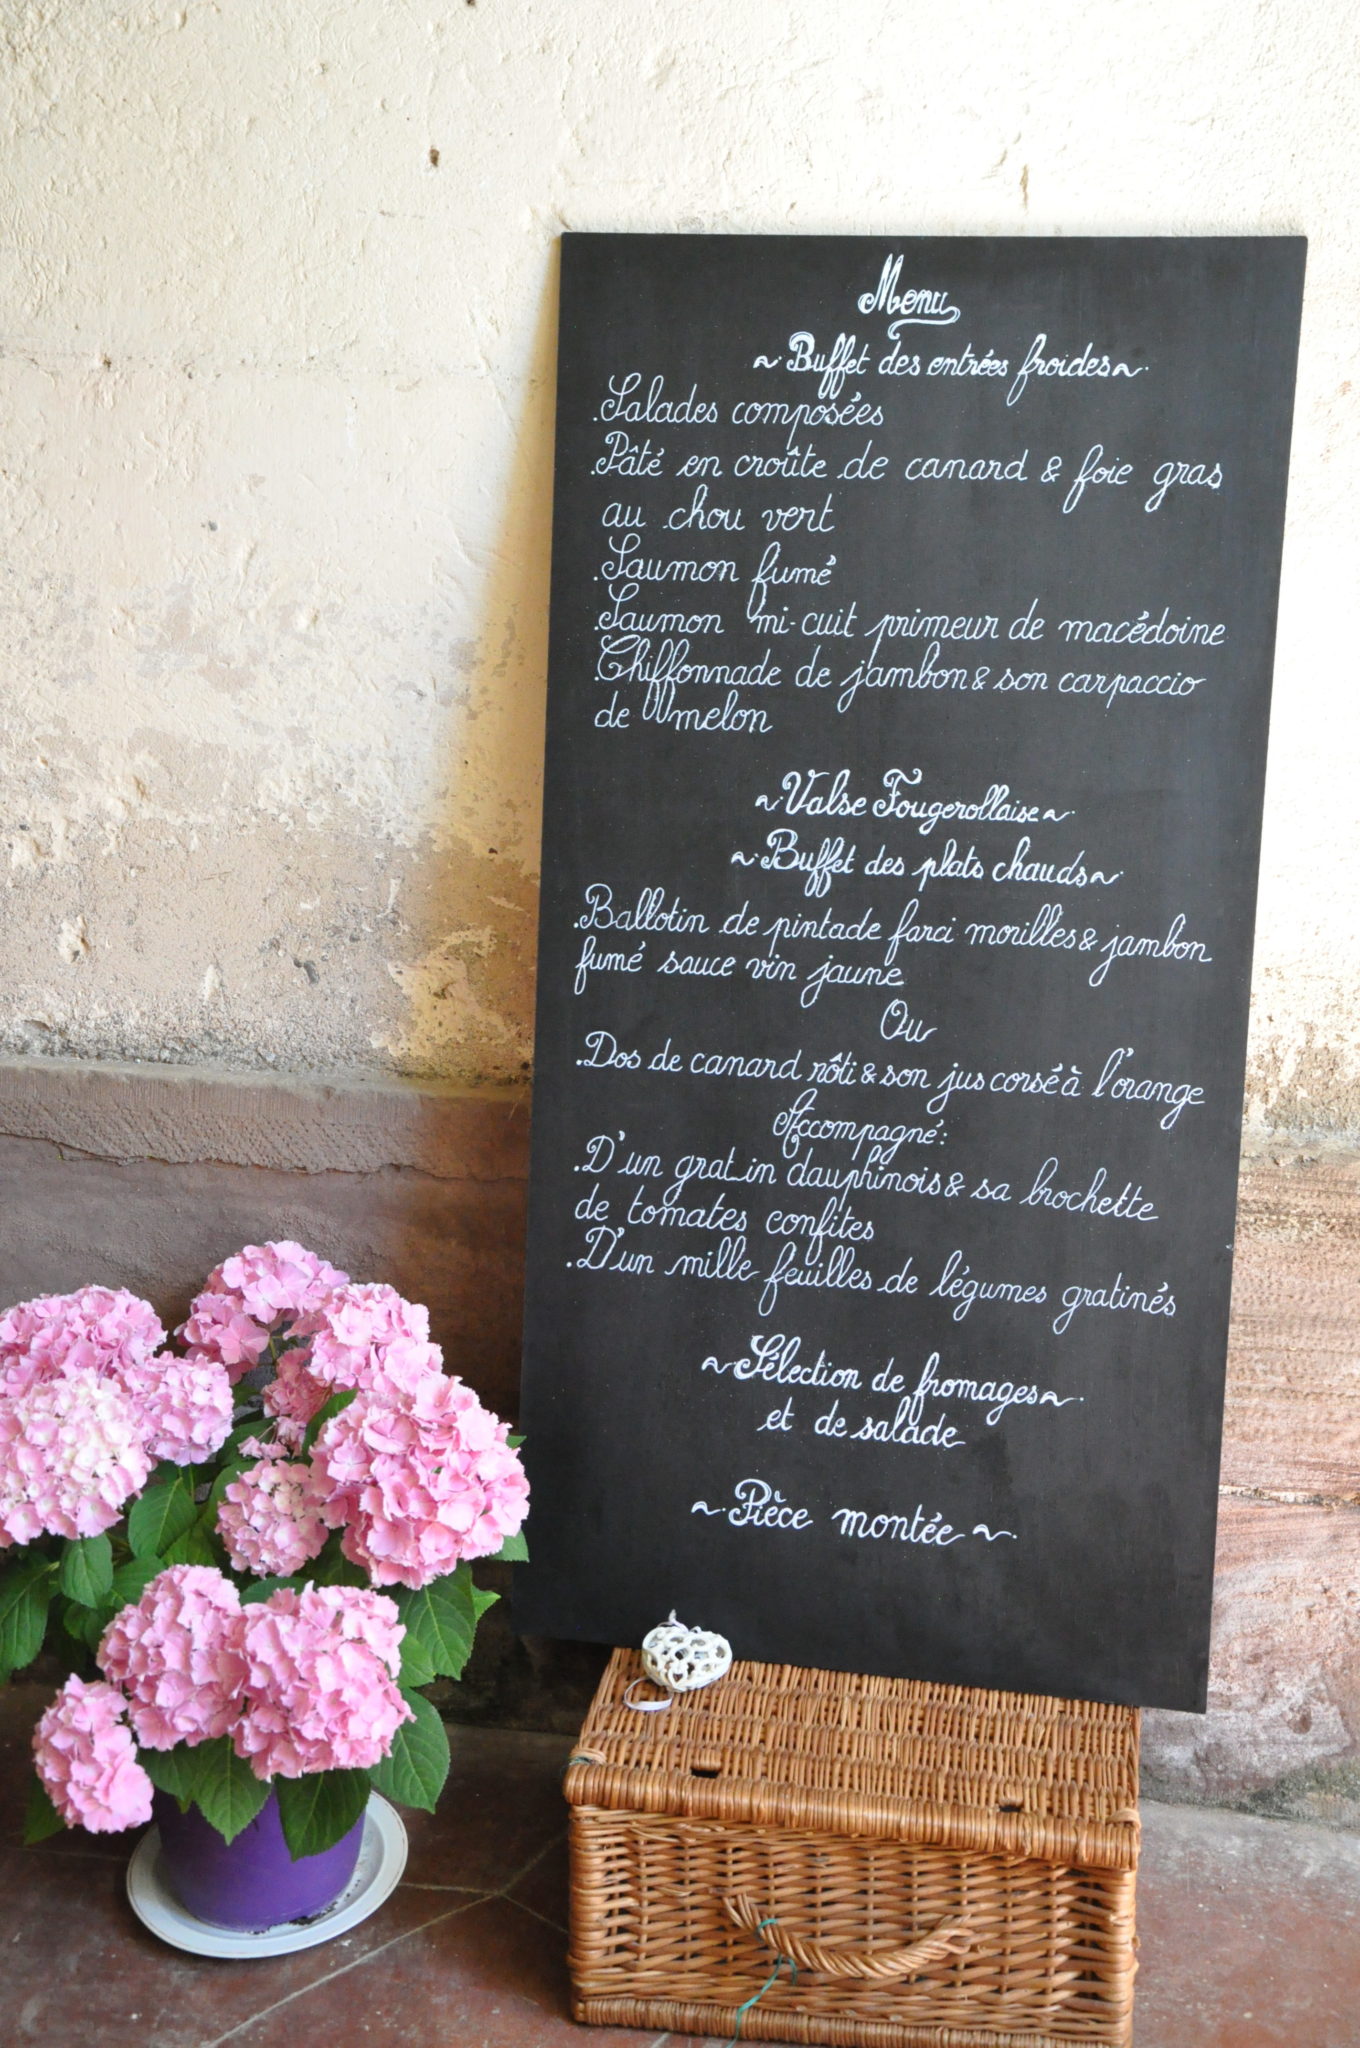 Menu
~·Buffet des entrées froides~·
.Salades composées
.Pâté en croûte de canard & foie gras
au chou vert
.Saumon fumé
.Saumon mi-cuit primeur de macédoine
.Chiffonnade de jambon & son carpaccio
de melon
~·Valse Fougerollaise~·
~·Buffet des plats chauds~·
.Ballotin de pintade farci morilles & jambon
fumé sauce vin jaune
Ou
.Dos de canard rôti & son jus corsé à l'orange
Accompagné:
.D'un gratin dauphinois & sa brochette
de tomates confites
.D'un mille feuilles de légumes gratinés
~·Sélection de fromages~·
et de salade
~·Pièce montée~·